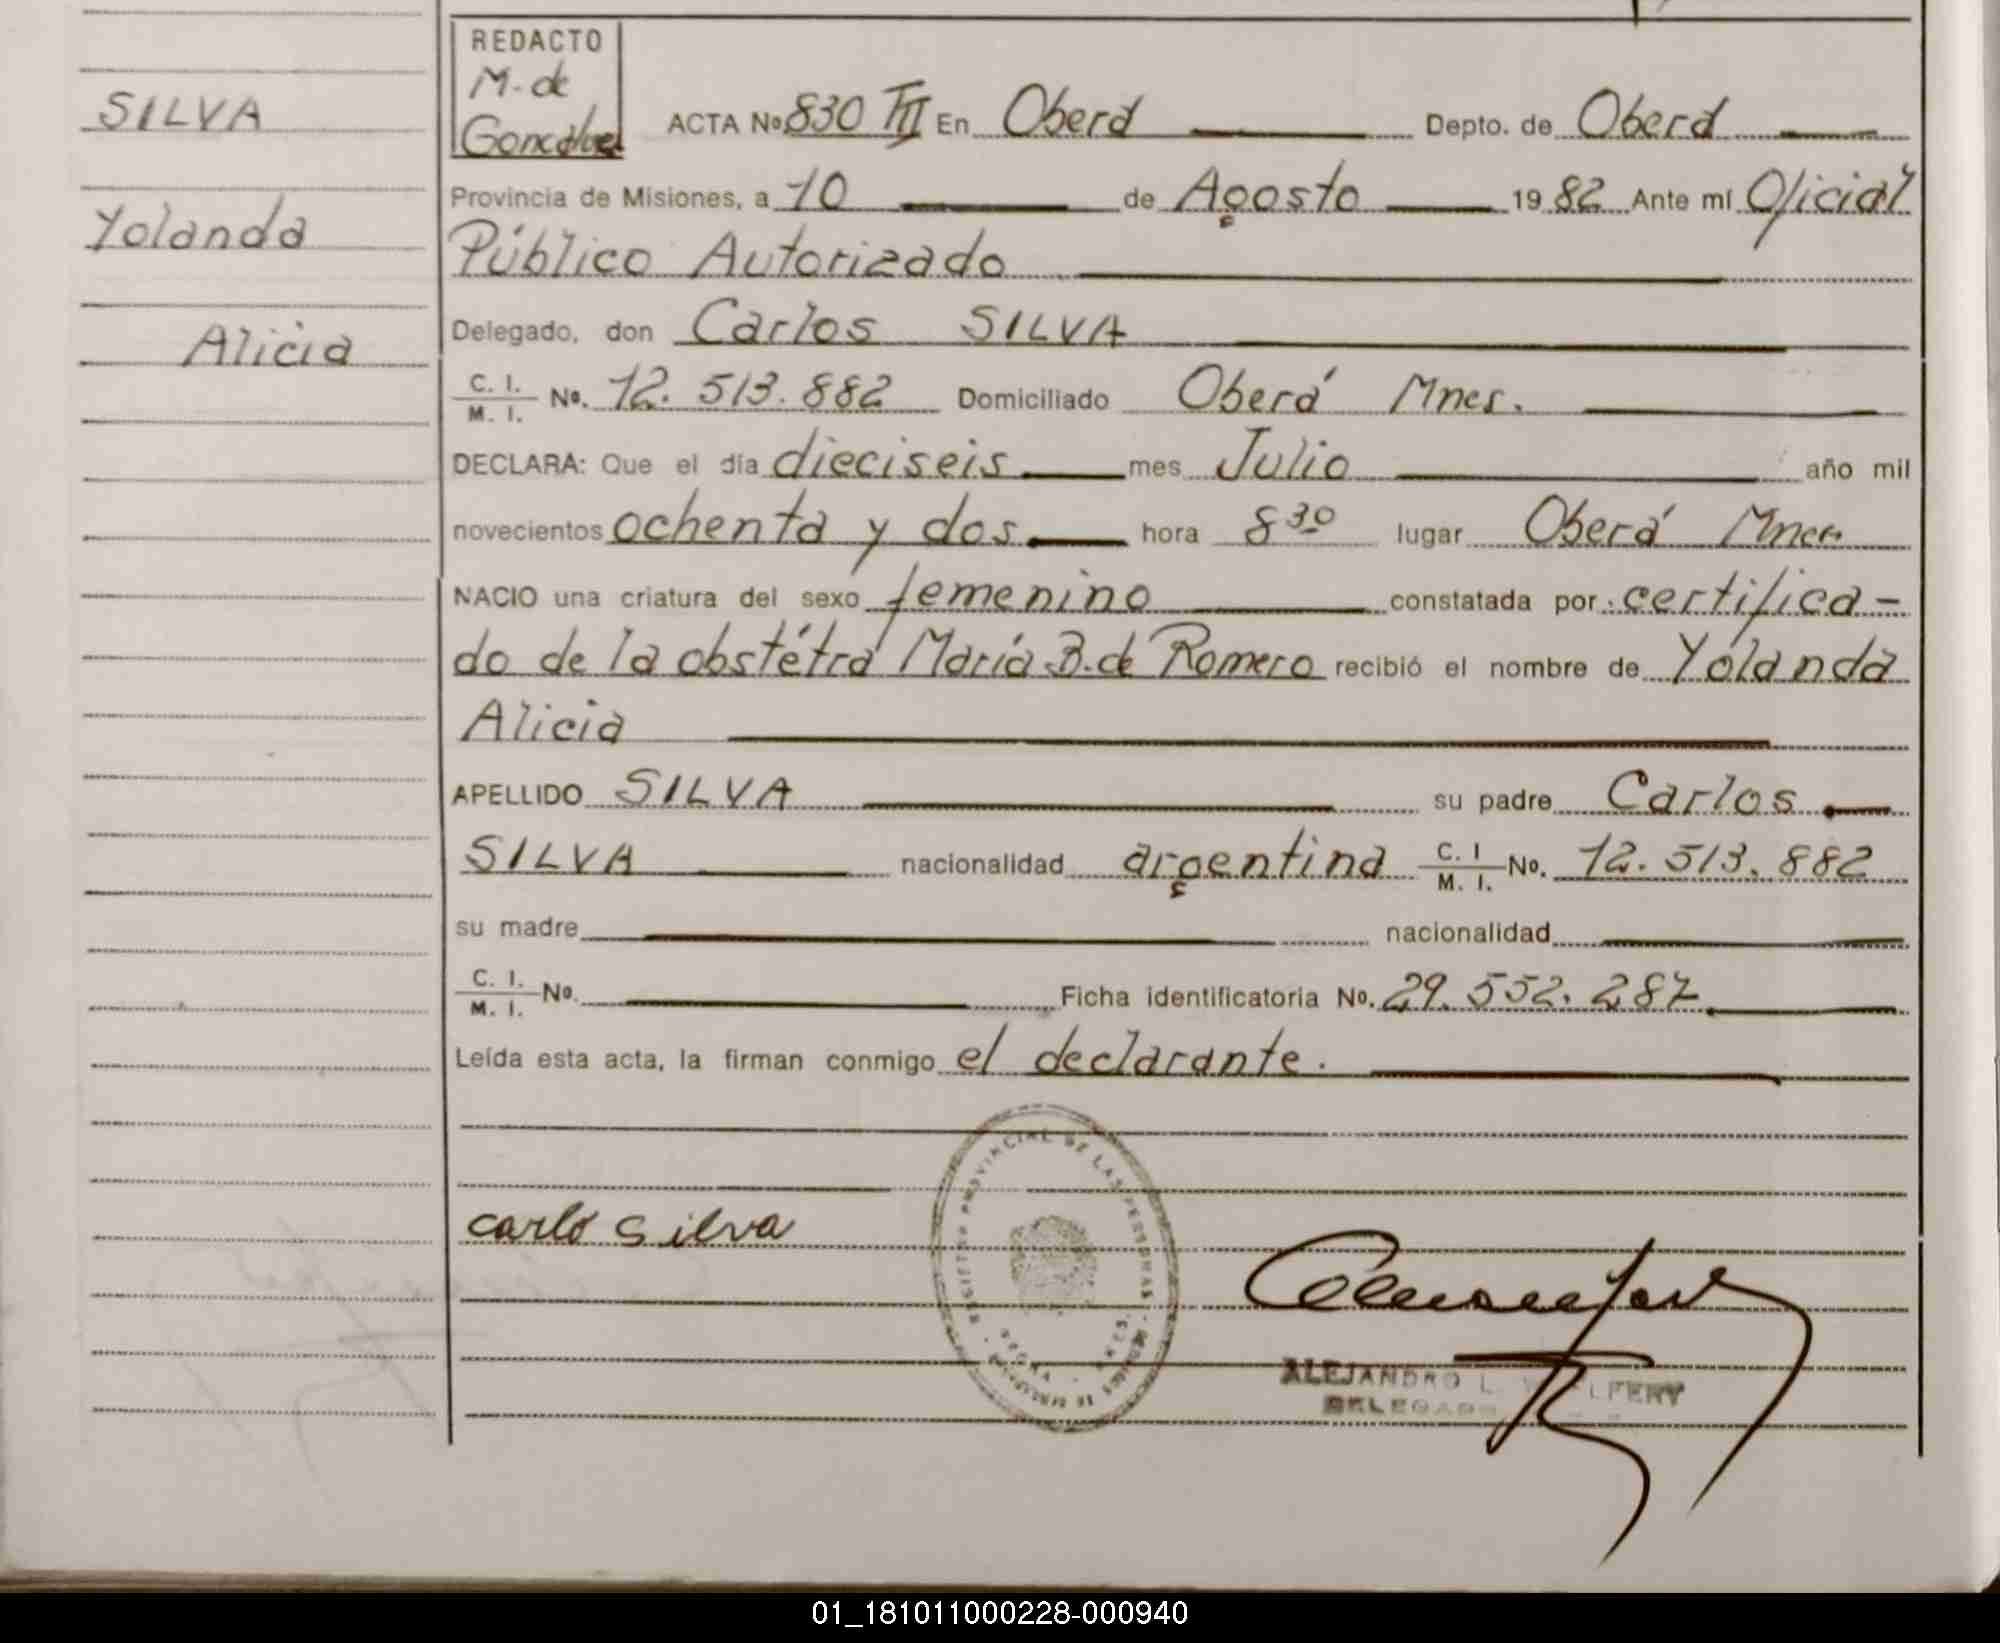 SILVA
Yolanda
Alicia
REDACTO
M. de
ACTA Nº 830 TII En Oberá Depto. de Oberá
Provincia de Misiones, a 10 de Agosto 1982 Ante mí Oficial
Público Autorizado
Delegado, don Carlos SILVA
C. I. / M. I. Nº. 12.513.882 Domiciliado Oberá Mnes.
DECLARA: Que el día dieciseis mes Julio año mil
novecientos ochenta y dos hora 8 30 lugar Oberá Mnes.
NACIO una criatura del sexo femenino constatada por certifica-
do de la obstétra María B. de Romero recibió el nombre de Yolanda
Alicia
APELLIDO SILVA su padre Carlos
SILVA nacionalidad argentina C. I / M. I. Nº. 12.513.882
su madre nacionalidad
C. I. / M. I. Nº. Ficha identificatoria No. 29.552.287
Leída esta acta, la firman conmigo el declarante.
REGISTRO PROVINCIAL DE LAS PERSONAS
carlo silva
ALEJANDRO L.
DELEGADO
01_181011000228-000940